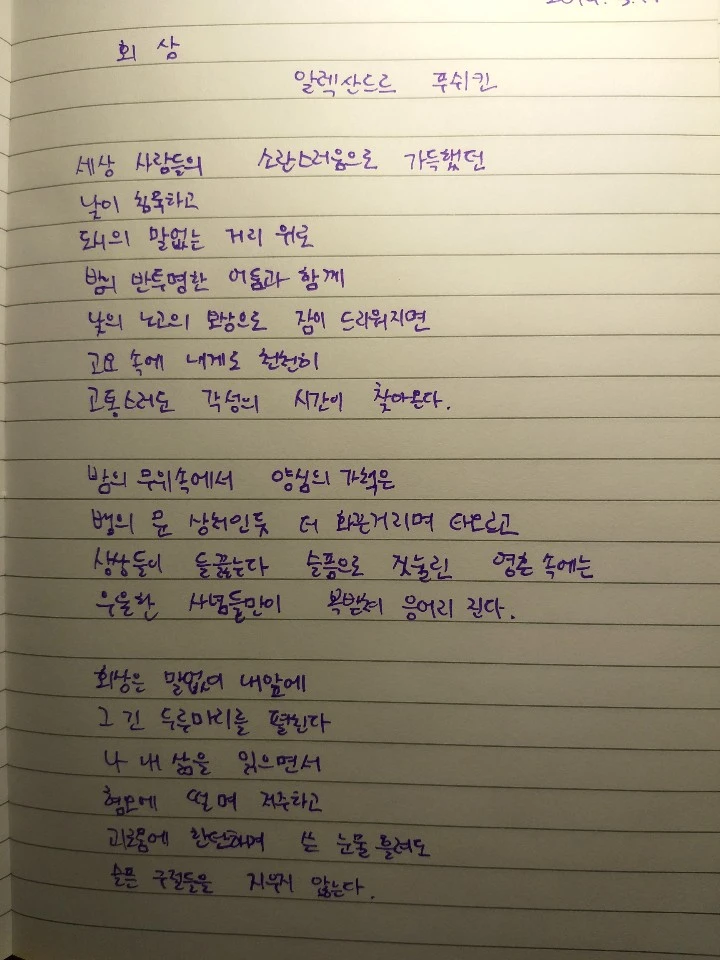 회 상
알렉산드르 푸쉬킨
세상 사람들의 소란스러움으로 가득했던
낮이 침묵하고
도시의 말없는 거리 위로
밤의 반투명한 어둠과 함께
낮의 노고의 보상으로 잠이 드리워지면
고요 속에 내게도 천천히
고통스러운 각성의 시간이 찾아온다.
밤의 무위속에서 양심의 가책은
뱀의 문 상처인듯 더 화끈거리며 타오르고
상상들이 들끓는다 슬픔으로 짓눌린 영혼 속에는
우울한 사념들만이 복받쳐 응어리 진다.
회상은 말없이 내앞에
그 긴 두루마리를 펼친다
나 내 삶을 읽으면서
혐오에 떨며 저주하고
괴로움에 한탄하며 쓴 눈물 흘려도
슬픈 구절들을 지우지 않는다.